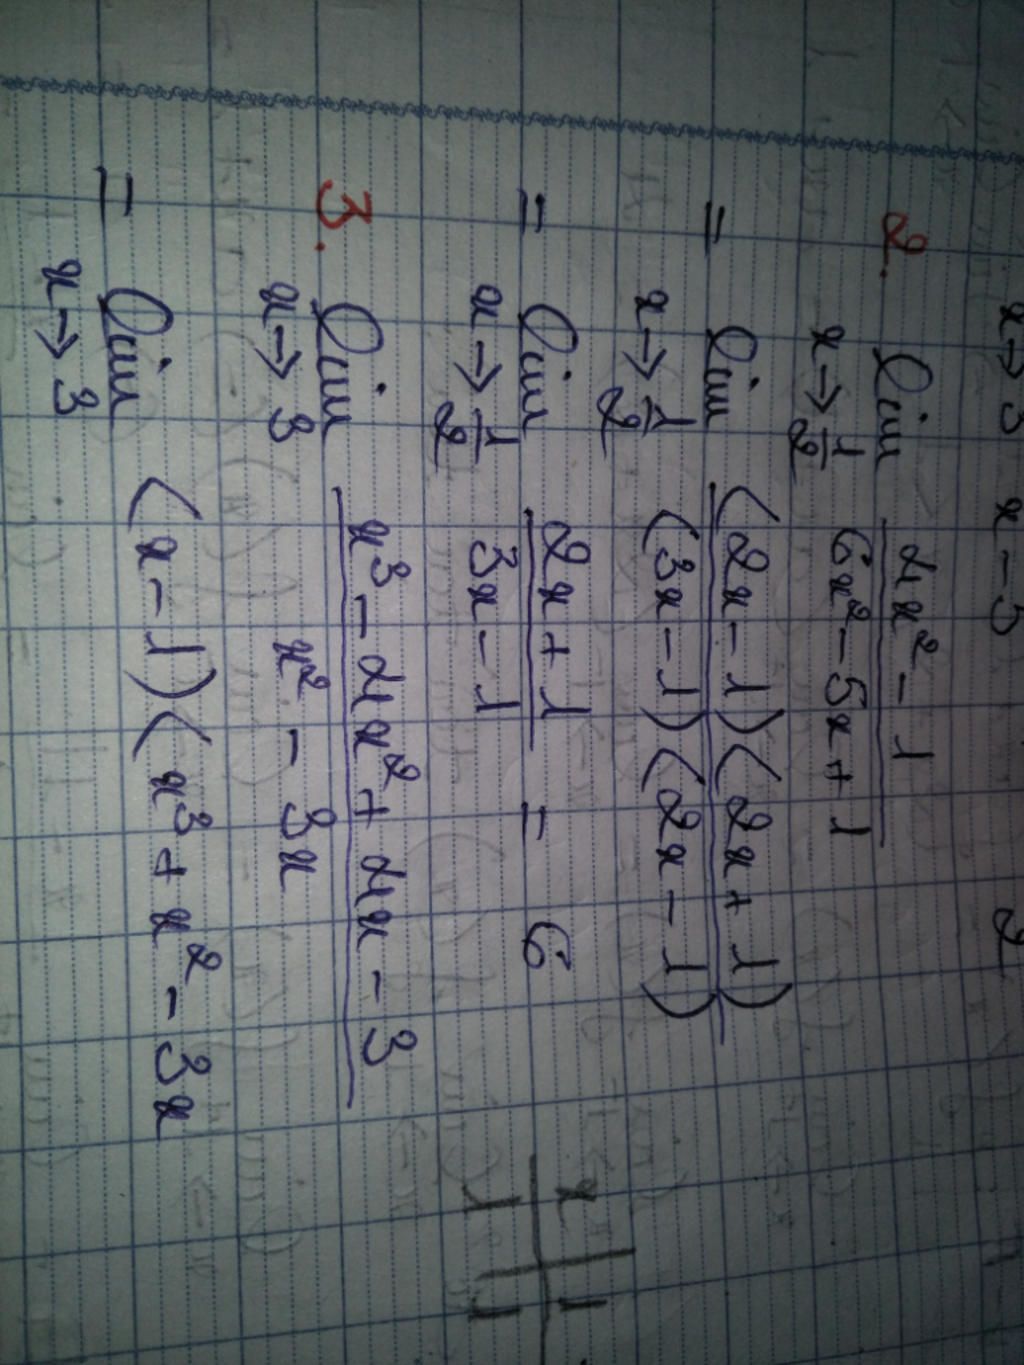 x → 3 x - 3 2
2. lim x → 1/2 (4x² - 1)/(6x² - 5x + 1)
= lim x → 1/2 ((2x - 1)(2x + 1))/((3x - 1)(2x - 1))
= lim x → 1/2 (2x + 1)/(3x - 1) = 6
3. lim x → 3 (x³ - 4x² + 4x - 3)/(x² - 3x)
= lim x → 3 (x - 1)(x³ + x² - 3x